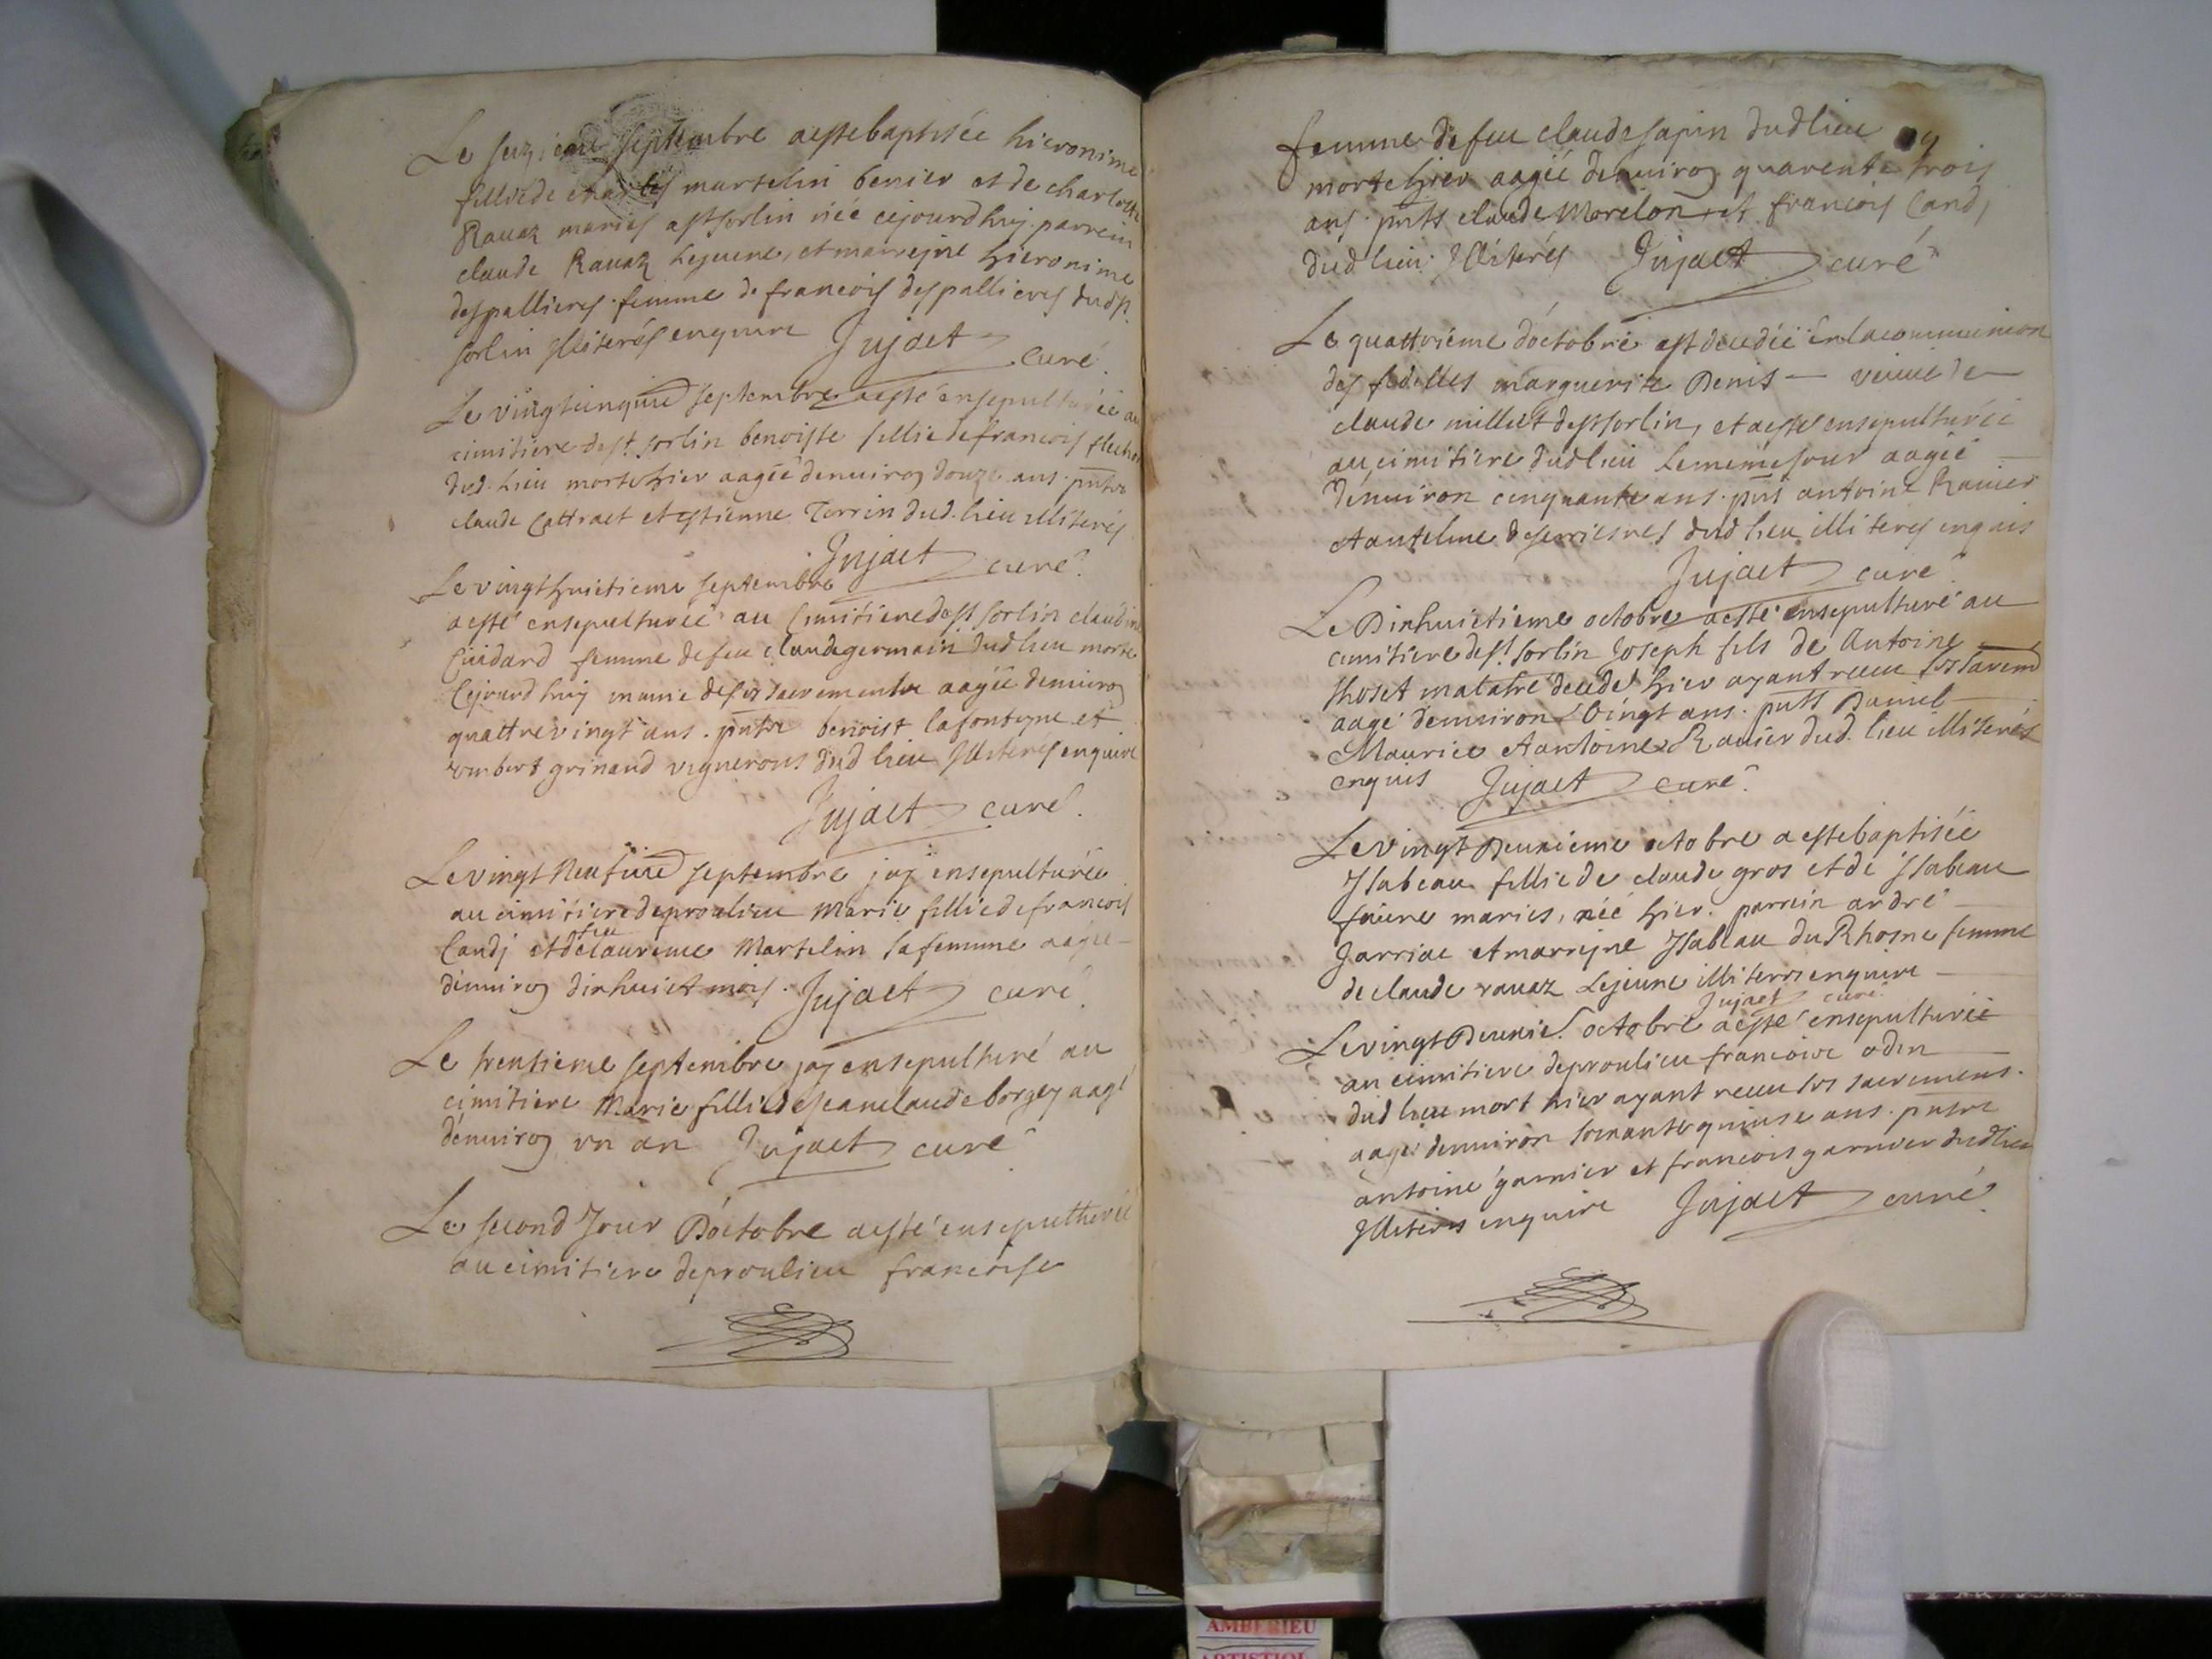 Le seizieme septembre a esté baptisée hieronime
fillie de charles martelin benier et de charlotte
Rauaz mariés a st sorlin née ce jourdhuy. parrein
claude Rauaz Lejeune, et marrejne hieronime
despallieres femme de francois despallieres dud st.
sorlin Illiterés enquire Jujaet curé.
Le vingt cinquie septembre a esté ensepulturée au
cimitiere de st. sorlin benoiste fillie de francois
dud. lieu morte hier aagée denuiron douze ans. pntz
claude Cattraet et estienne Terrin dud. lieu illiterés
Jujaet curé.
Le vingt huictieme septembre
a esté ensepulturée au Cimitiere de st sorlin claudine
Cuidard femme de feu claude germain dud lieu morte
Cejourdhuy munie de ses sacrements aagée denuiron
quattre vingt ans. pntz benoist lafontyne et
vmbert grinand vignerons dud lieu Illiterés enquire
Jujaet curé.
Le vingt Neufuie septembre jaj ensepulturée
au cimitiere de proulieu Marie fillie de francois
Candj et de feu Laurence Martelin sa femme aagée
denuiron dixhuict mois. Jujaet curé.
Le trentieme septembre jaj ensepulturé au
cimitiere Marie fillie de Jean claude borgey aagé
denuiron vn an Jujaet curé
Le second Jour D'octobre a esté ensepultherée
au cimitiere de proulieu francoise
femme de feu claude sapin dud lieu
morte hier aagée denuiron quarente trois
ans. pntz claude Morelon et francois Candj
dud lieu Illiterés Jujaet curé
Le quattrieme d'octobre est decedée en la communion
des fidelles marguerite Denis — veuue de —
claude milliet de st sorlin, et a esté ensepulturée
au cimitiere dud lieu Le meme Jour aagée —
denuiron cinquante ans. pnts antoine Rauier
et antelme deserriesres dud lieu illiterés enquis
Jujaet curé.
Le Dixhuictieme octobre a esté ensepulturé au
cimitiere de st. sorlin Joseph fils de Antoine
thoset decedé hier ayant receu
aagé denuiron Vingt ans. pnts Daniel
Maurice et antoine Rauier dud. lieu illiterés
enquis Jujaet curé.
Le vingt Deuxieme octobre a esté baptisée
Isabeau fillie de claude gros et de Isabeau
faiure mariés, née hier. parrein andré —
Jarriae et marrejne Isabeau du Rhosne femme
de claude rauaz Lejeune illiterés enquire —
Jujaet curé.
Le vingt Deuxie. octobre a esté ensepulturée
au cimitiere de proulieu francoise odin
dud lieu mort hier ayant receu ses sacremens.
aagé denuiron soixante quinse ans. pntz
antoine garnier et francois garnier dud lieu
Illiterés enquire Jujaet curé.
AMBERIEU